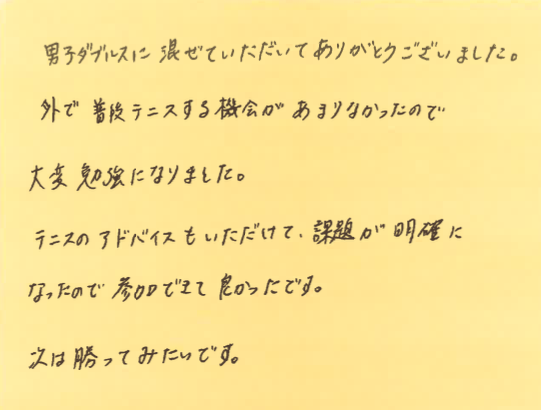 男子ダブルスに混ぜていただいてありがとうございました。
外で普段テニスする機会があまりなかったので
大変勉強になりました。
テニスのアドバイスもいただけて、課題が明確に
なったので参加できて良かったです。
次は勝ってみたいです。